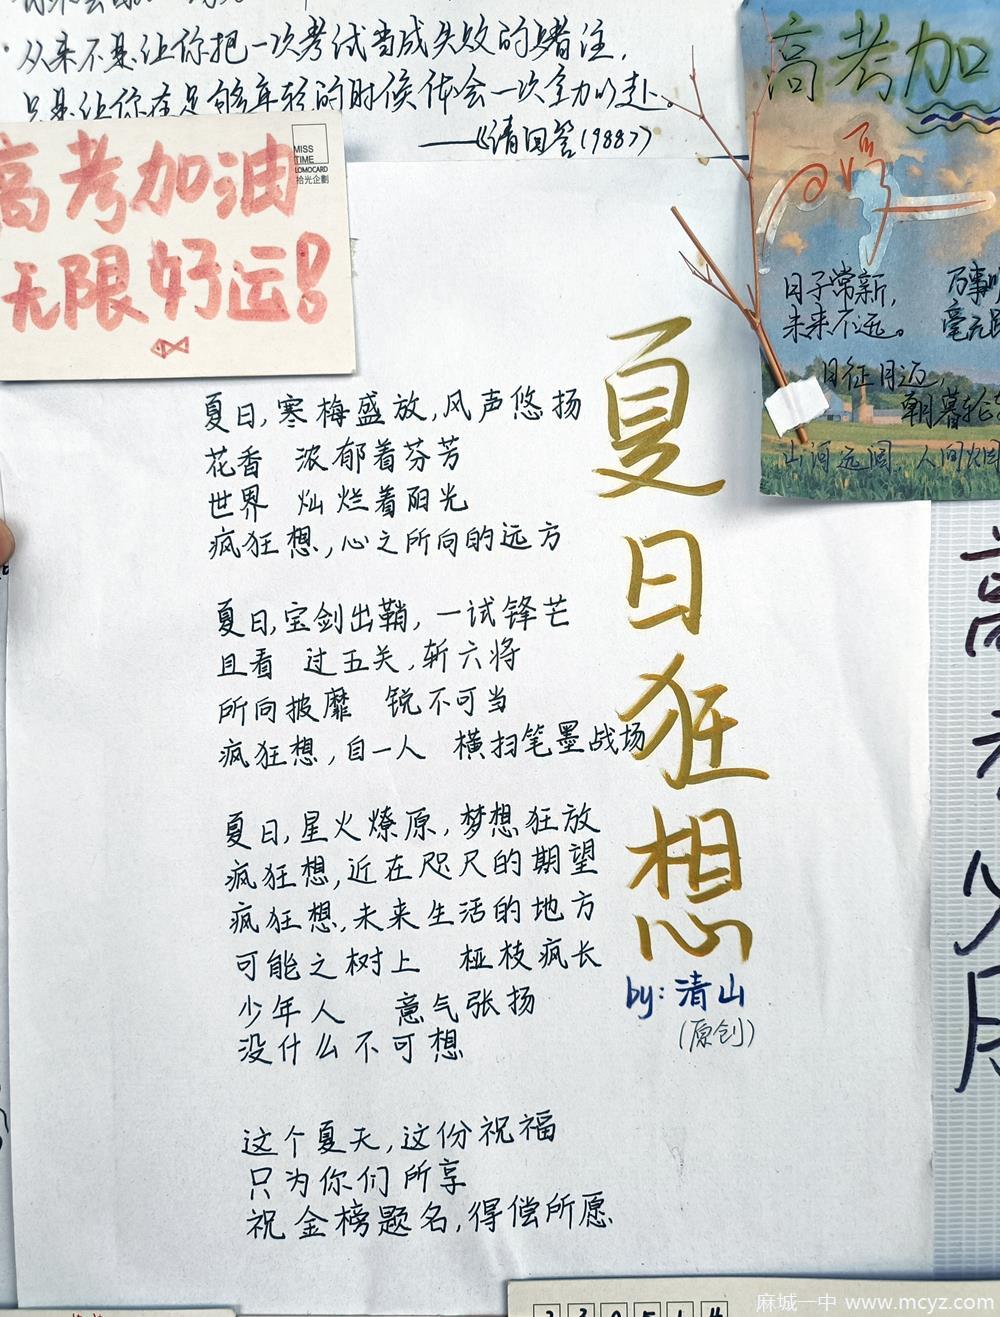 从来不是让你把一次考试当成失败的赌注，
只是让你在足够年轻的时候体会一次全力以赴。
——《请回答1988》
高考加油
无限好运！
MISS
TIME
LOMOCARD
拾光企劃
高考加
日子常新，
未来不远。
万事
毫无
日征月迈，
朝暮轮
山河远阔，人间烟
夏日狂想
by：清山
（原创）
夏日，寒梅盛放，风声悠扬
花香 浓郁着芬芳
世界 灿烂着阳光
疯狂想，心之所向的远方
夏日，宝剑出鞘，一试锋芒
且看 过五关，斩六将
所向披靡 锐不可当
疯狂想，自一人 横扫笔墨战场
夏日，星火燎原，梦想狂放
疯狂想，近在咫尺的期望
疯狂想，未来生活的地方
可能之树上 桠枝疯长
少年人 意气张扬
没什么不可想
这个夏天，这份祝福
只为你们所享
祝金榜题名，得偿所愿
高考
麻城一中 www.mcyz.com